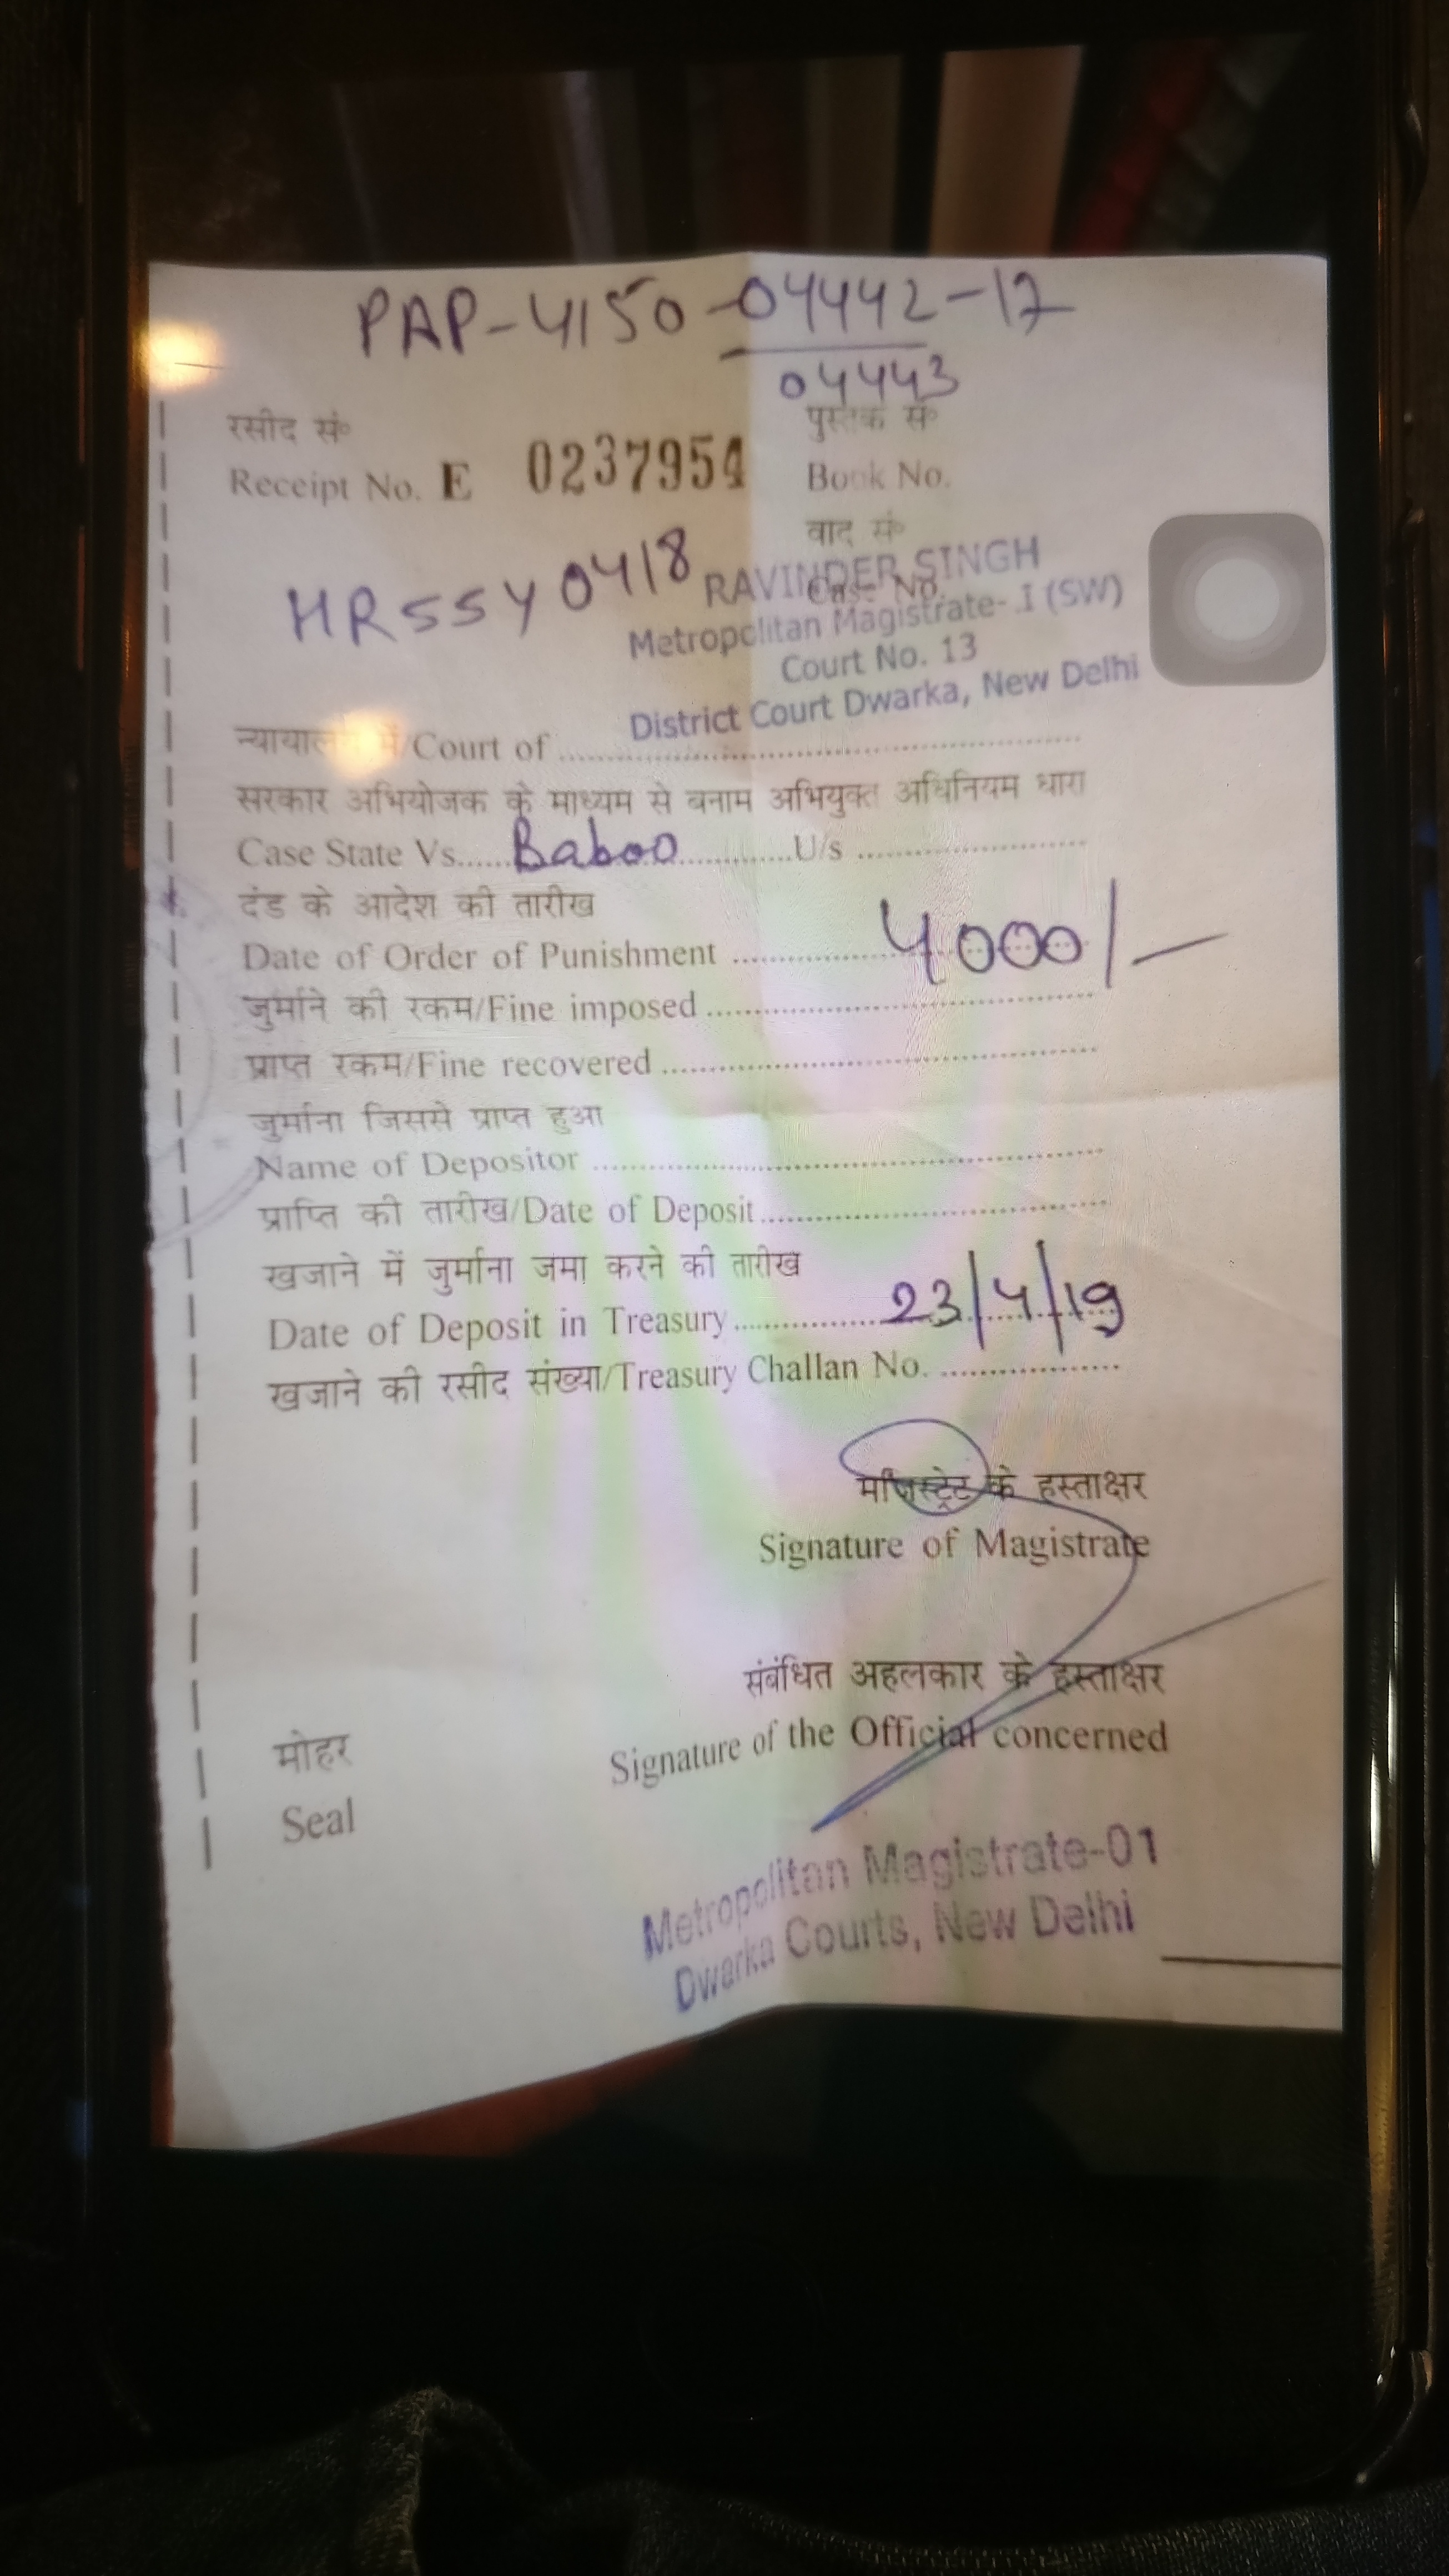 PAP-4150-04442-17
04443
रसीद सं०
पुस्तक सं०
Receipt No. E 0237954
Book No.
वाद सं०
Case No.
HR55Y0418
RAVINDER SINGH
Metropolitan Magistrate- I (SW)
Court No. 13
District Court Dwarka, New Delhi
/Court of ..........
सरकार अभियोजक के माध्यम से बनाम अभियुक्त अधिनियम धारा
Case State Vs......Baboo............U/s ..........
दंड के आदेश की तारीख
Date of Order of Punishment .......... 4000/-
जुर्माने की रकम/Fine imposed ..........
प्राप्त रकम/Fine recovered ..........
जुर्माना जिससे प्राप्त हुआ
Name of Depositor ..........
प्राप्ति की तारीख/Date of Deposit..........
खजाने में जुर्माना जमा करने की तारीख
Date of Deposit in Treasury.......... 23/4/19
खजाने की रसीद संख्या/Treasury Challan No. ..........
मजिस्ट्रेट के हस्ताक्षर
Signature of Magistrate
संबंधित अहलकार के हस्ताक्षर
Signature of the Official concerned
मोहर
Seal
Metropolitan Magistrate-01
Dwarka Courts, New Delhi